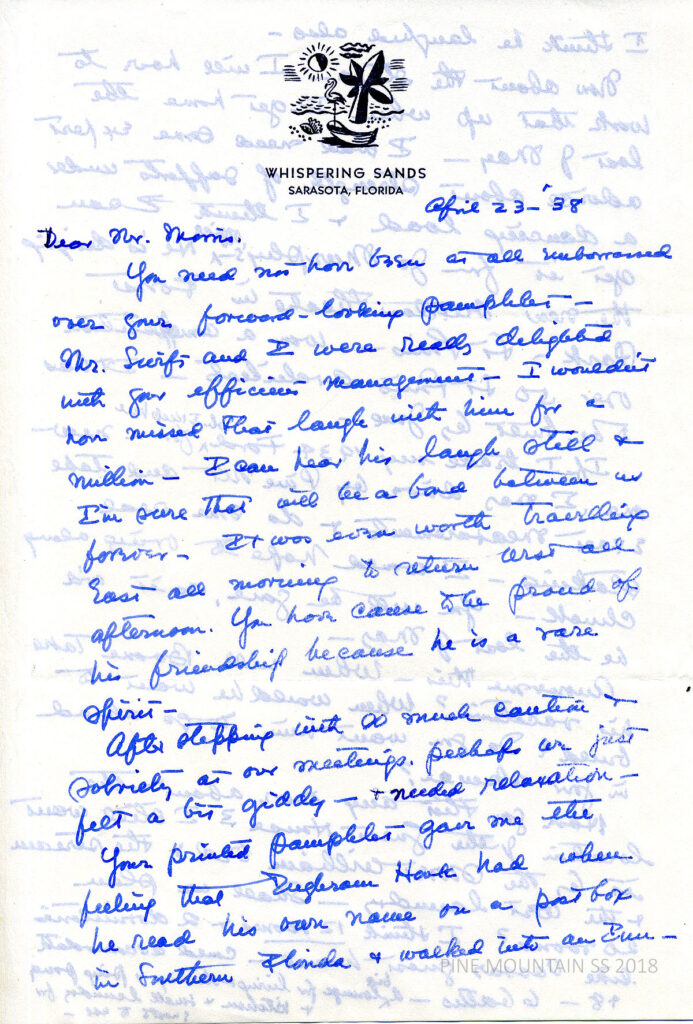 WHISPERING SANDS
SARASOTA, FLORIDA
April 23-'38
Dear Mr. Morris.
You need not have been at all embarrassed
over your forward-looking pamphlet-
Mr. Swift and I were really delighted
with your efficient management- I wouldn't
have missed that laugh with him for a
million- I can hear his laugh still &
I'm sure that will be a bond between us
forever- It was even worth travelling
East all morning to return West all
afternoon. You have cause to be proud of
his friendship because he is a rare
spirit-
After stepping with so much caution &
sobriety at our meetings. perhaps we just
felt a bit giddy- & needed relaxation-
Your printed pamphlet gave me the
feeling that Inghram Hook had when
he read his own name on a post box
in Southern Florida & walked into an Inn-
PINE MOUNTAIN SS 2018